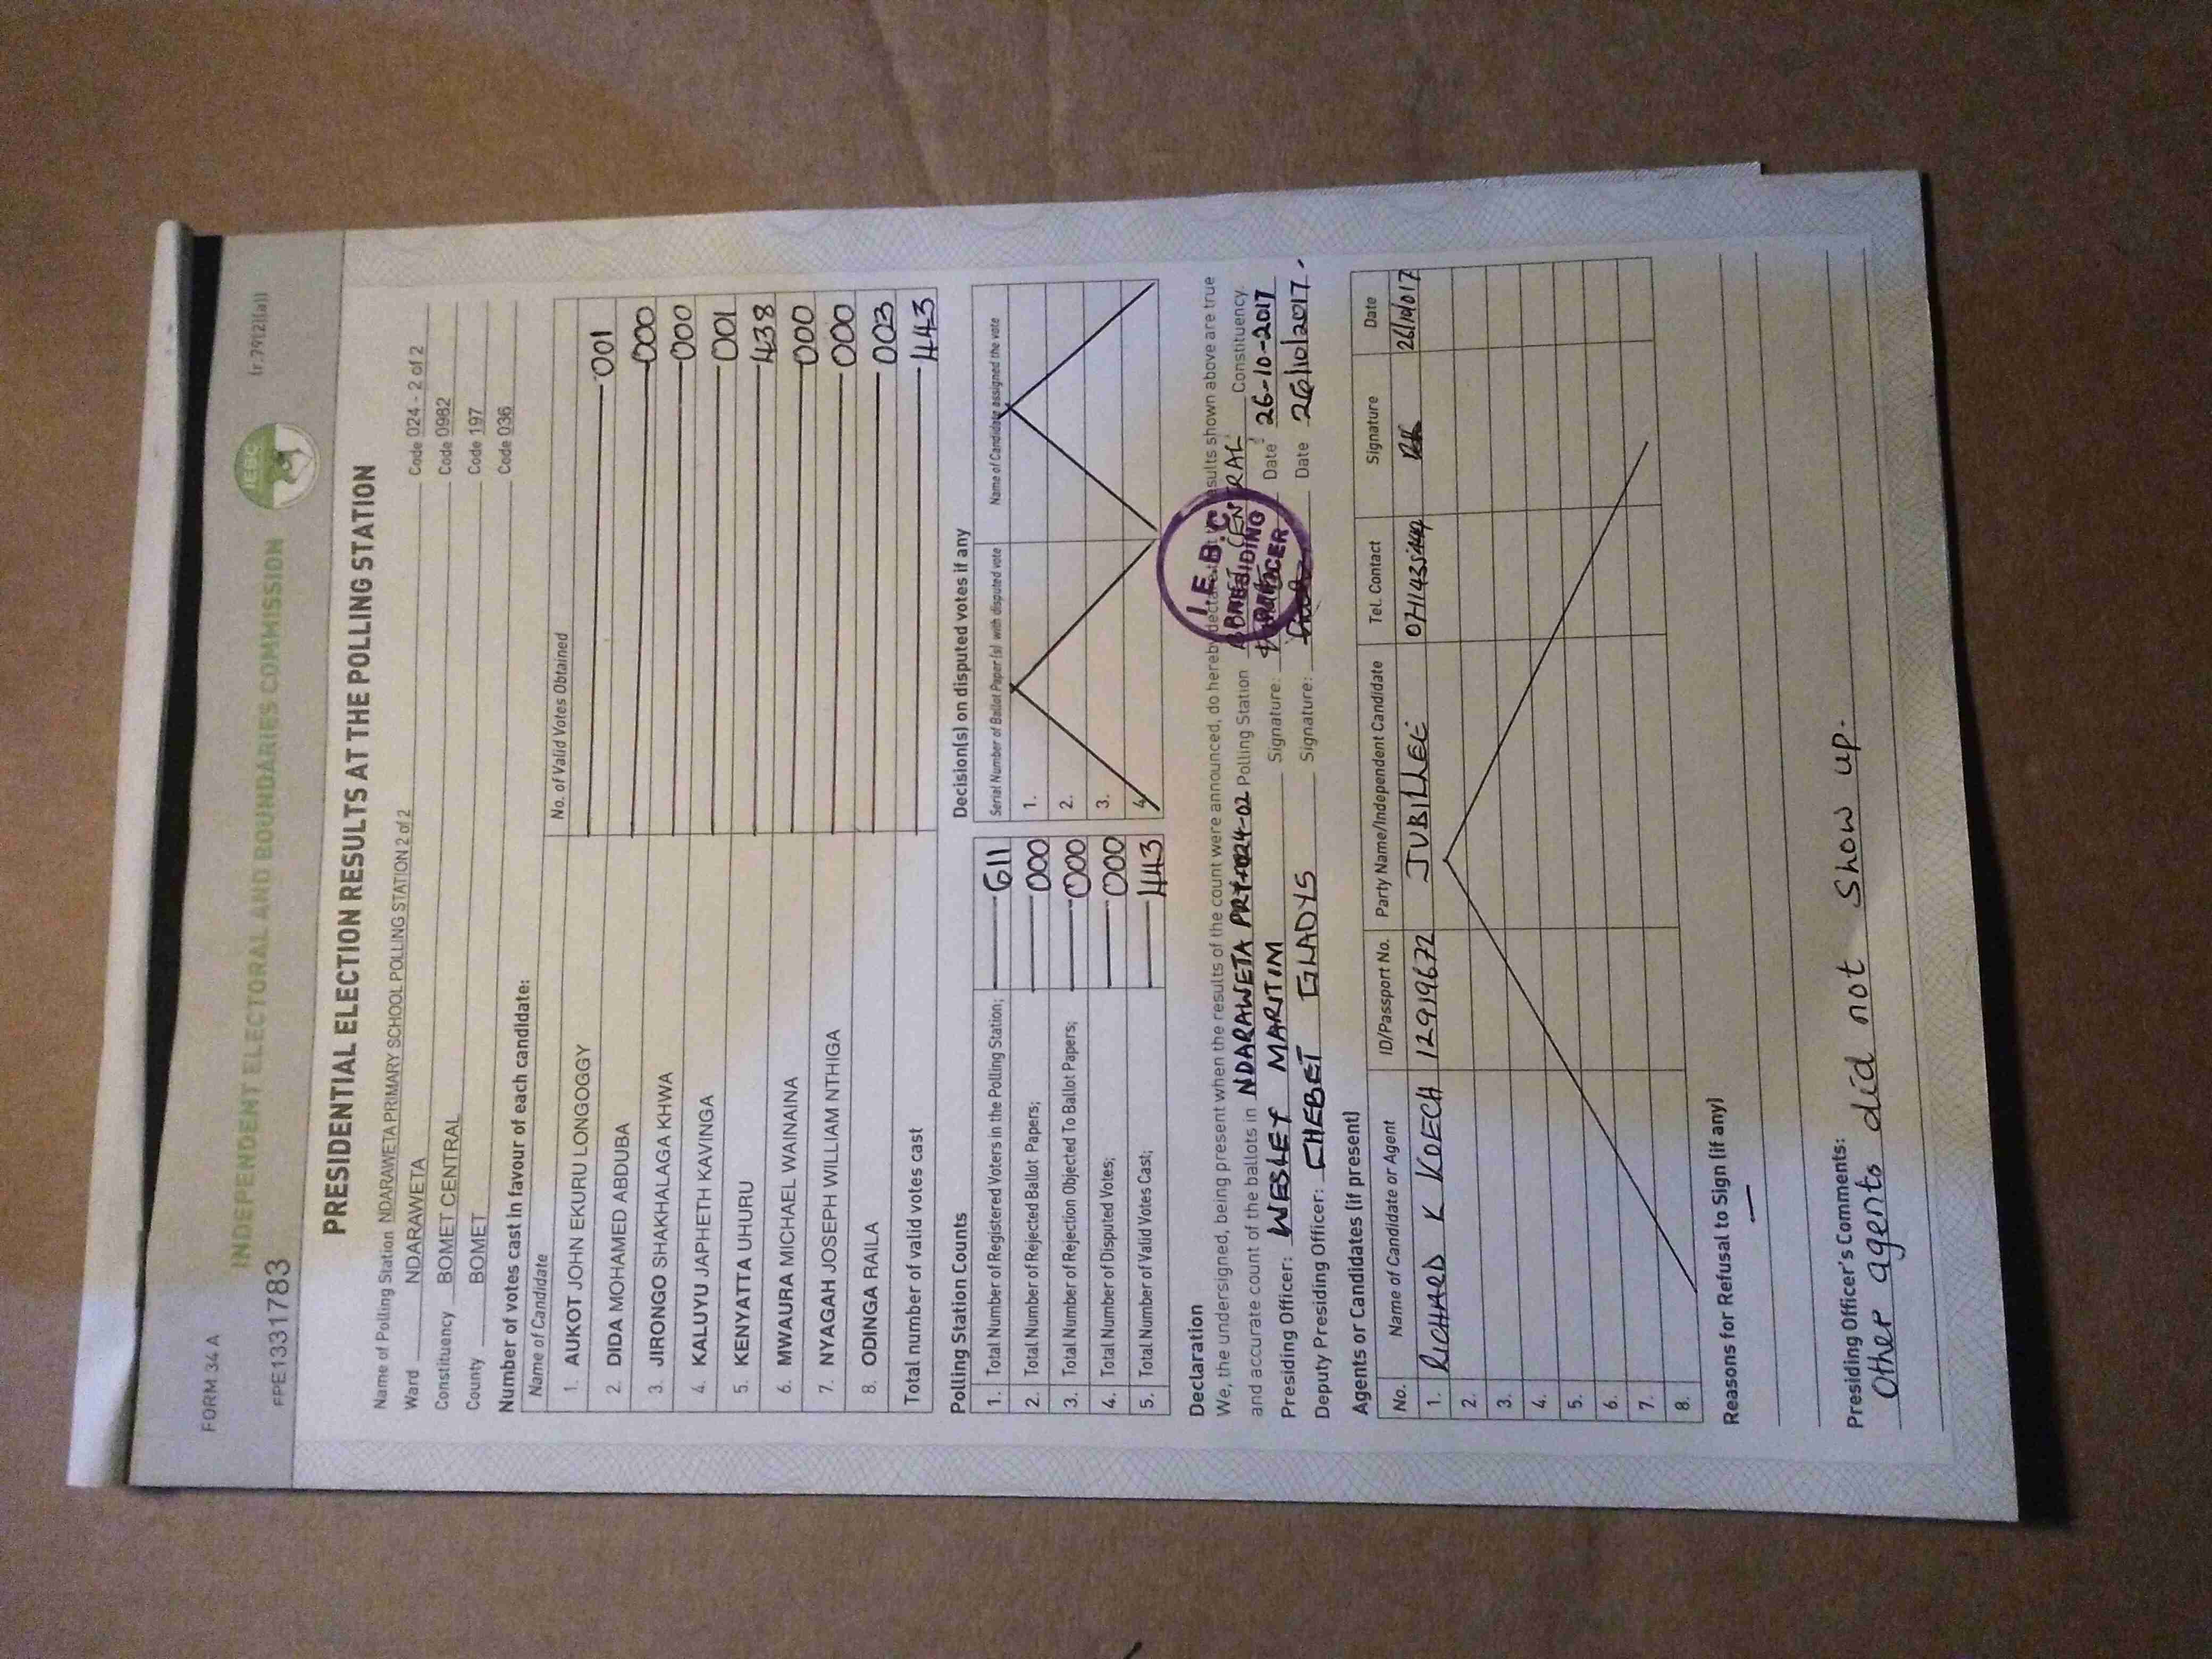 FORM 34 A
(r.79(2)(a))
INDEPENDENT ELECTORAL AND BOUNDARIES COMMISSION
IEBC
FPE1331783
PRESIDENTIAL ELECTION RESULTS AT THE POLLING STATION
Name of Polling Station NDARAWETA PRIMARY SCHOOL POLLING STATION 2 of 2 Code 024 - 2 of 2
Ward NDARAWETA Code 0982
Constituency BOMET CENTRAL Code 197
County BOMET Code 036
Number of votes cast in favour of each candidate:
Name of Candidate No. of Valid Votes Obtained
1. AUKOT JOHN EKURU LONGOGGY 001
2. DIDA MOHAMED ABDUBA 000
3. JIRONGO SHAKHALAGA KHWA 000
4. KALUYU JAPHETH KAVINGA 001
5. KENYATTA UHURU 438
6. MWAURA MICHAEL WAINAINA 000
7. NYAGAH JOSEPH WILLIAM NTHIGA 000
8. ODINGA RAILA 003
Total number of valid votes cast 443
Polling Station Counts
1. Total Number of Registered Voters in the Polling Station; 611
2. Total Number of Rejected Ballot Papers; 000
3. Total Number of Rejection Objected To Ballot Papers; 000
4. Total Number of Disputed Votes; 000
5. Total Number of Valid Votes Cast; 443
Decision(s) on disputed votes if any
Serial Number of Ballot Paper (s) with disputed vote Name of Candidate assigned the vote
1.
2.
3.
4.
Declaration
We, the undersigned, being present when the results of the count were announced, do hereby declare that the results shown above are true
and accurate count of the ballots in NDARAWETA PRY-024-02 Polling Station BOMET CENTRAL Constituency.
Presiding Officer: WESLEY MARITIM Signature: Date 26-10-2017
Deputy Presiding Officer: CHEBET GLADYS Signature: Date 26/10/2017.
I.E.B.C.
PRESIDING
OFFICER
Agents or Candidates (if present)
No. Name of Candidate or Agent ID/Passport No. Party Name/Independent Candidate Tel. Contact Signature Date
1. RICHARD K KOECH 12919672 JUBILLEE
2.
3.
4.
5.
6.
7.
8.
Reasons for Refusal to Sign (if any)
Presiding Officer's Comments:
Other agents did not show up.